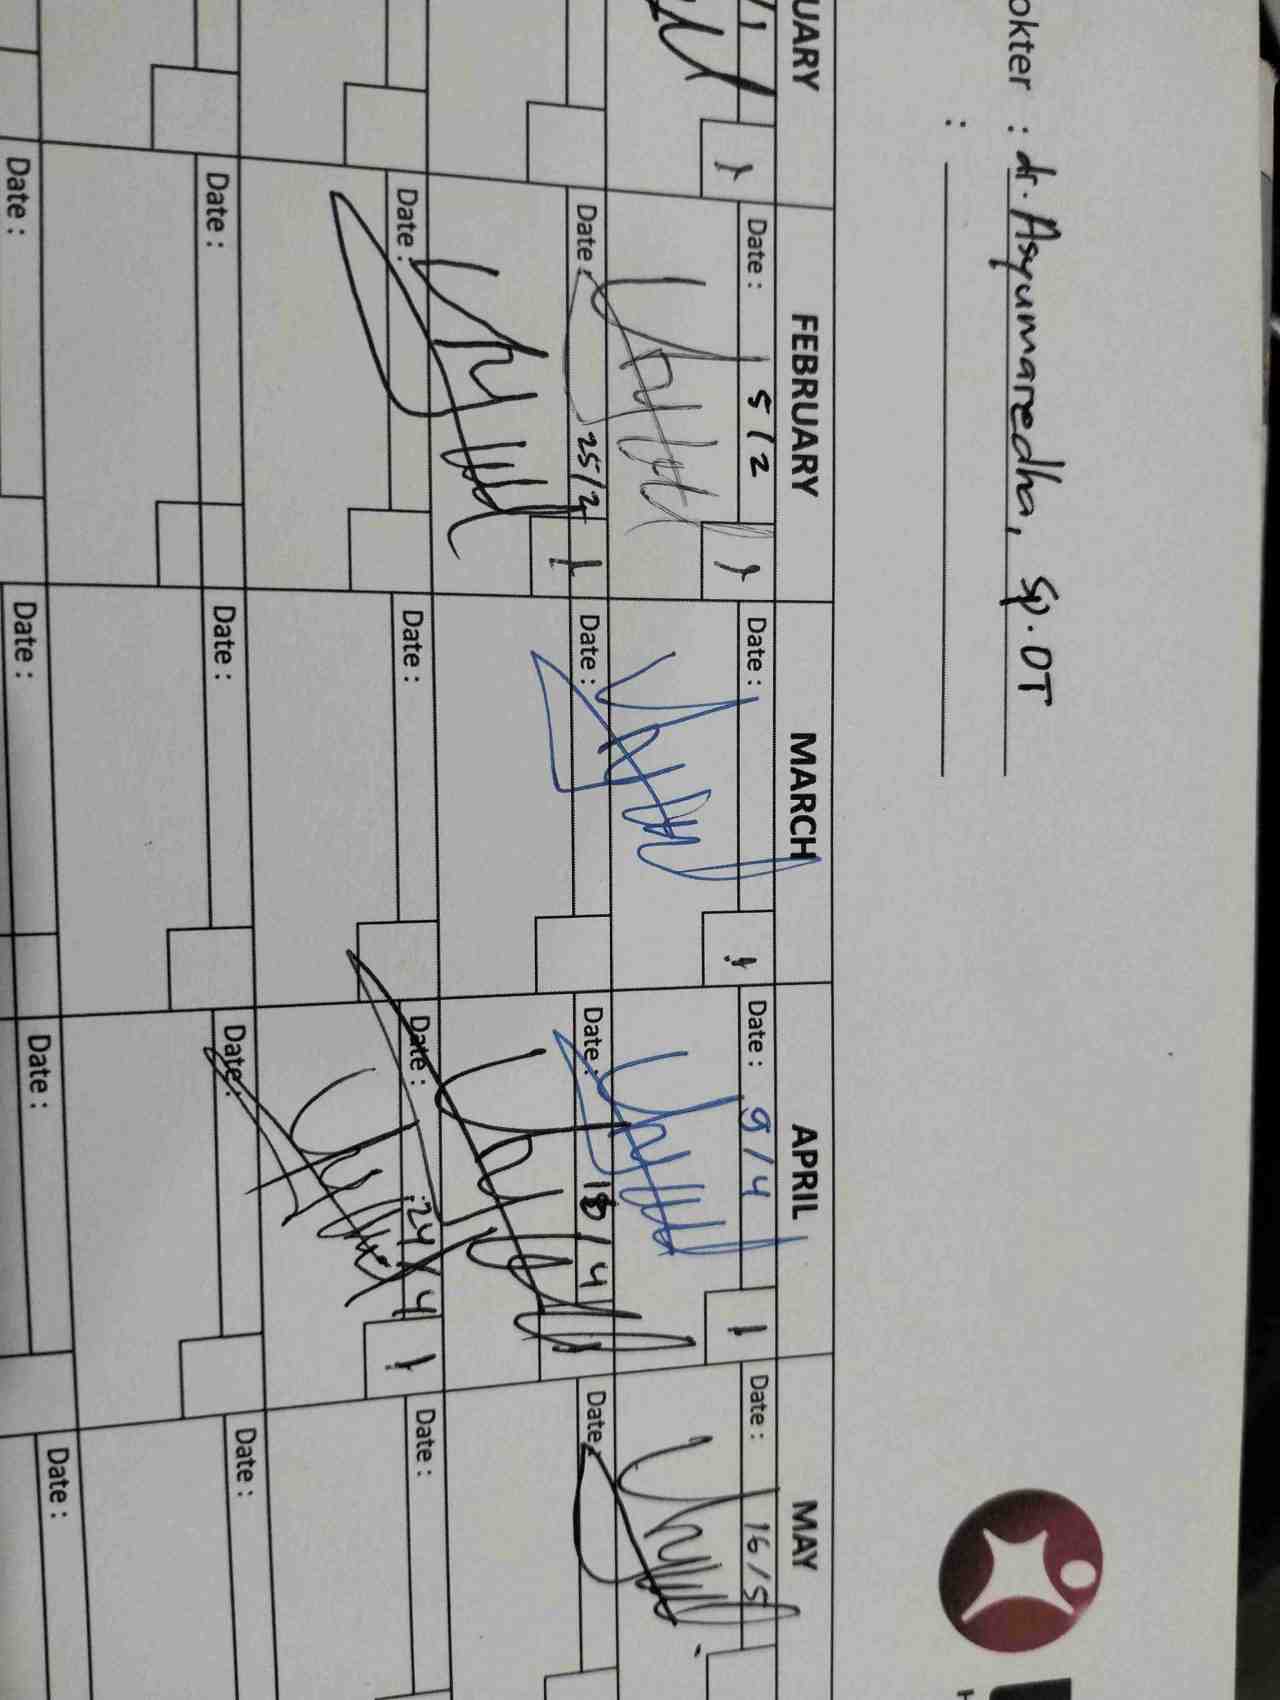 okter : dr. Asyumaredha, Sp.OT
:
UARY FEBRUARY MARCH APRIL MAY
Date : 5/2 Date : Date : 9/4 Date : 16/5
1 1 1 1
Date : 25/2 Date : Date : 18/4 Date :
1
Date : Date : Date : 24/4 Date :
1
Date : Date : Date : Date :
Date : Date : Date : Date :